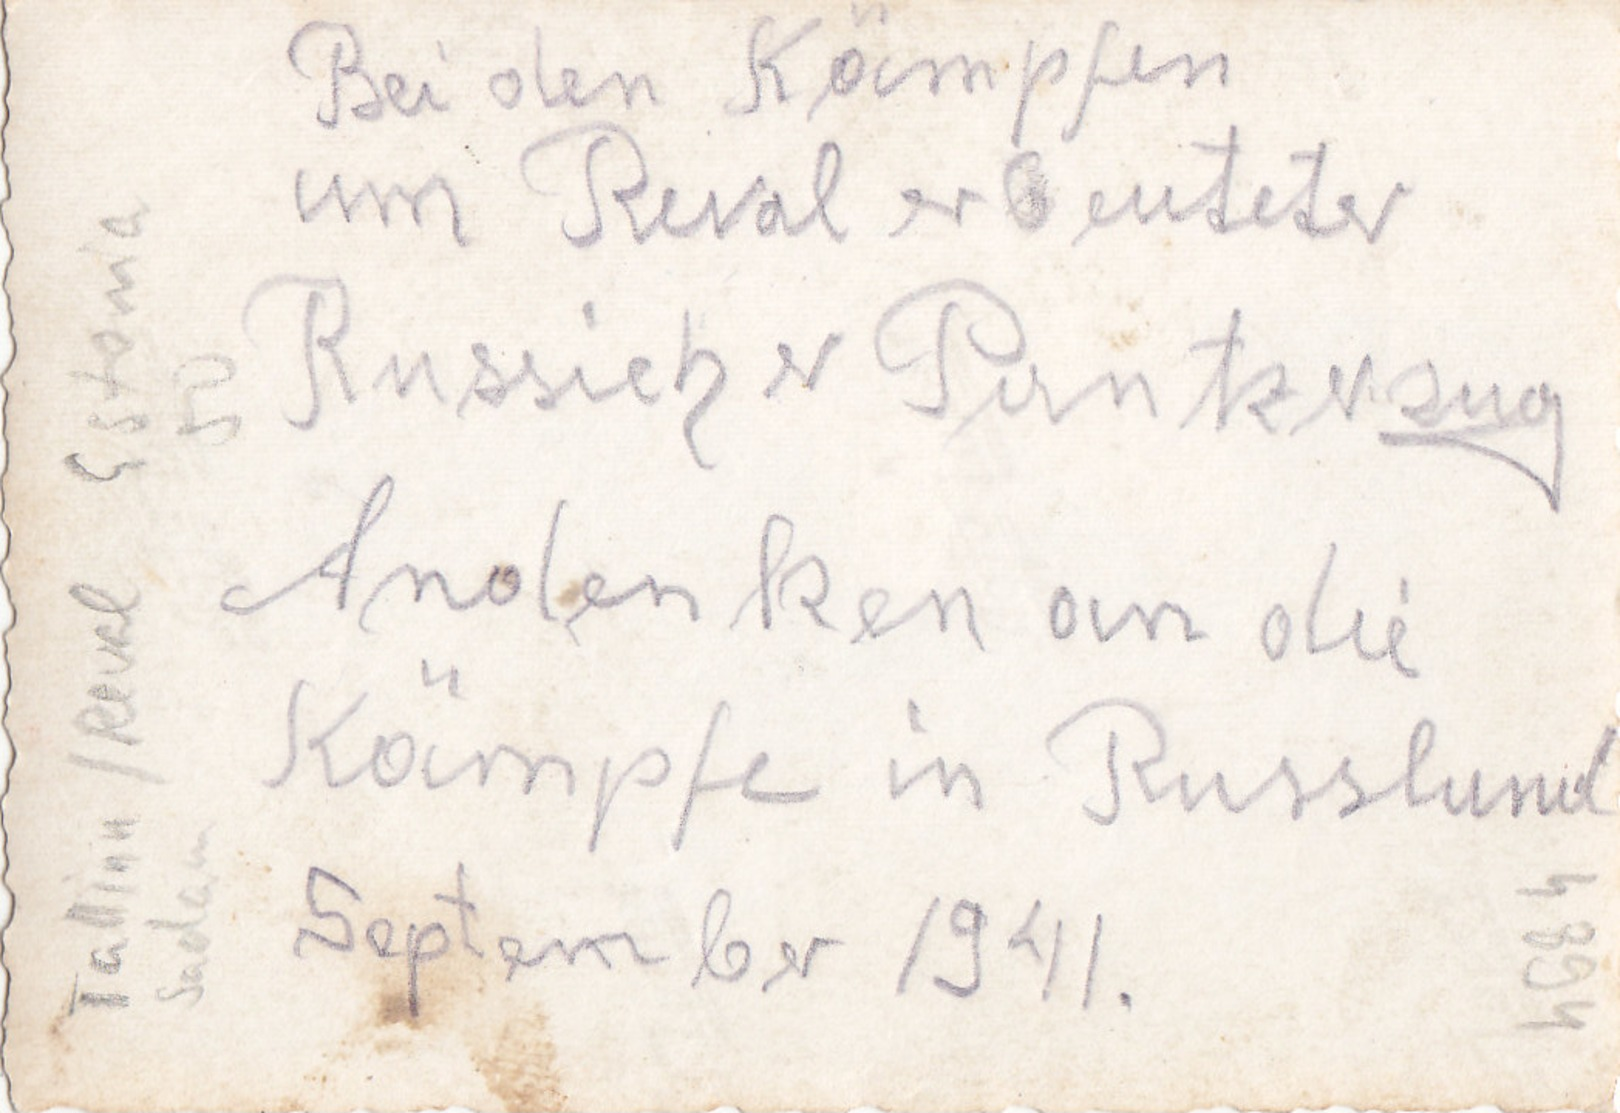 Bei den Kämpfen
um Reval erbeuteter
Russicher Pantzerzug
Andenken an die
Kämpfe in Russland
September 1941.
Tallinn / Reval Estonia
Sadam
50
4894